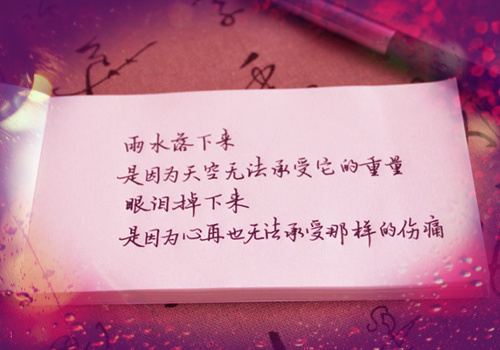 雨水落下来
是因为天空无法承受它的重量
眼泪掉下来
是因为心再也无法承受那样的伤痛